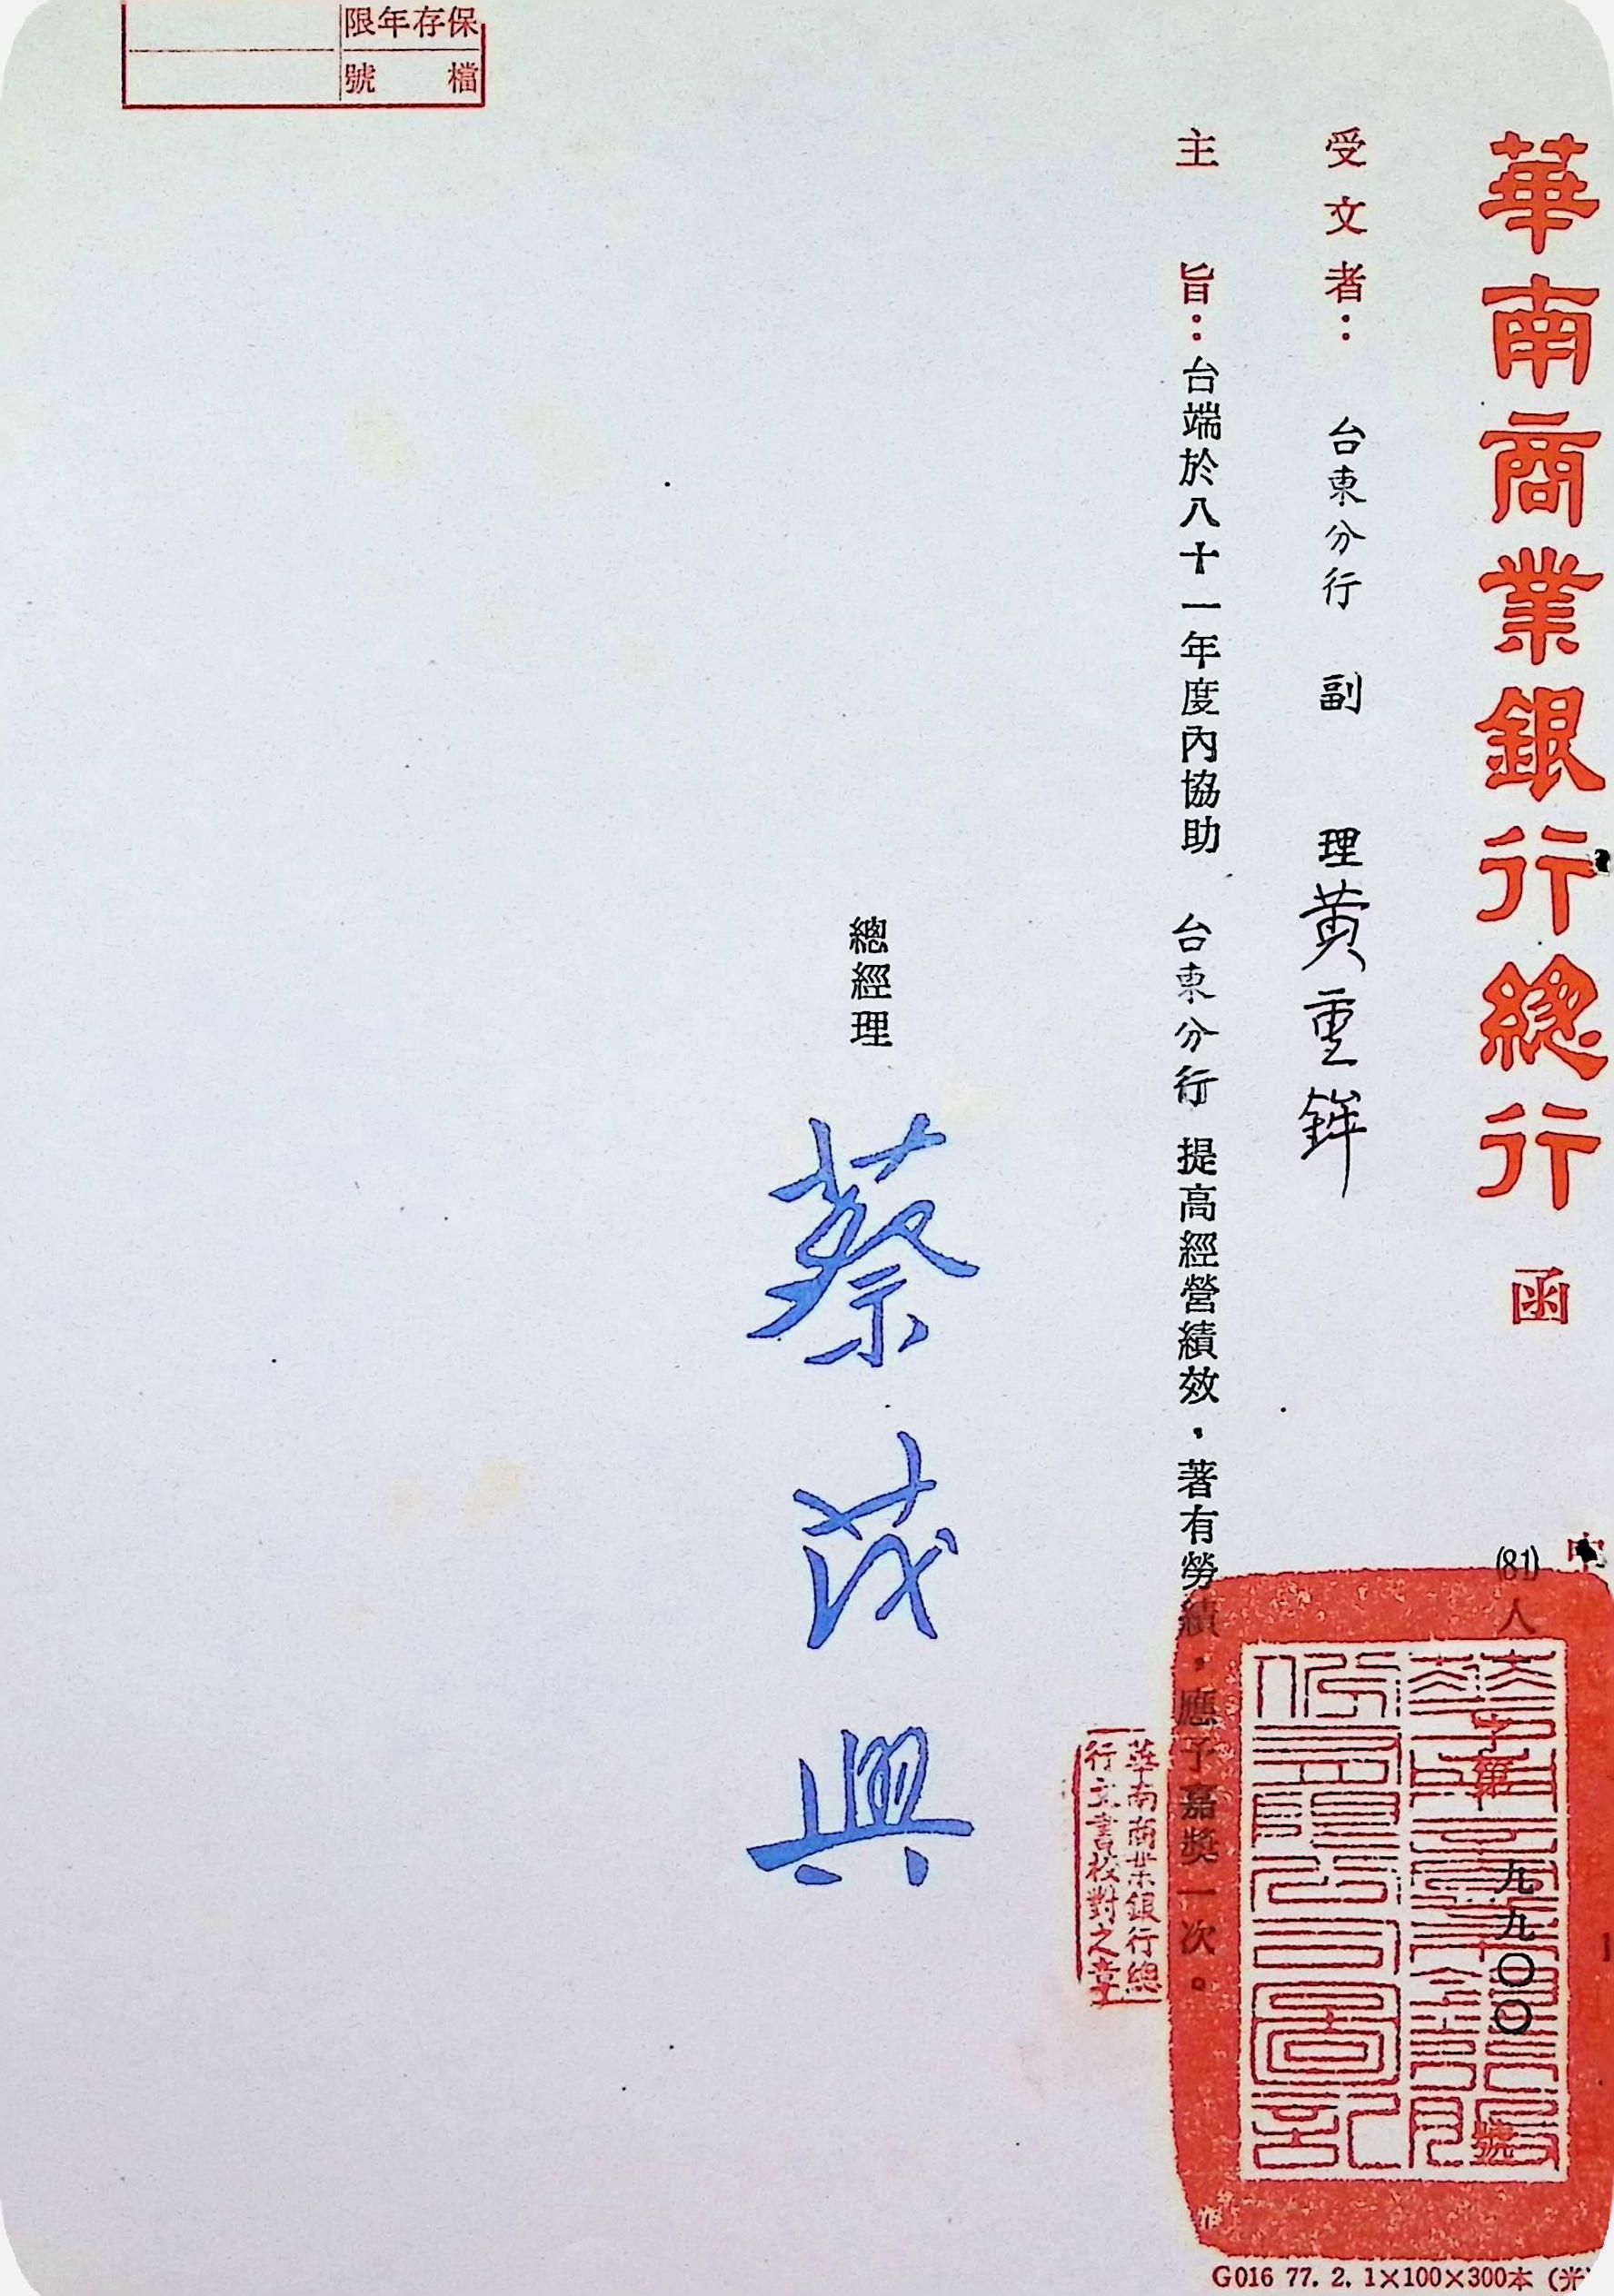 華南商業銀行總行 函
(81)人
字第九九〇〇號
受文者： 台東分行 副 理 黃重鉾
主 旨：台端於八十一年度內協助 台東分行 提高經營績效，著有勞績，應予嘉獎一次。
華南商業銀行總
行文書校對之章
總經理 蔡茂興
保存年限
檔 號
G016 77. 2. 1×100×300本 (光